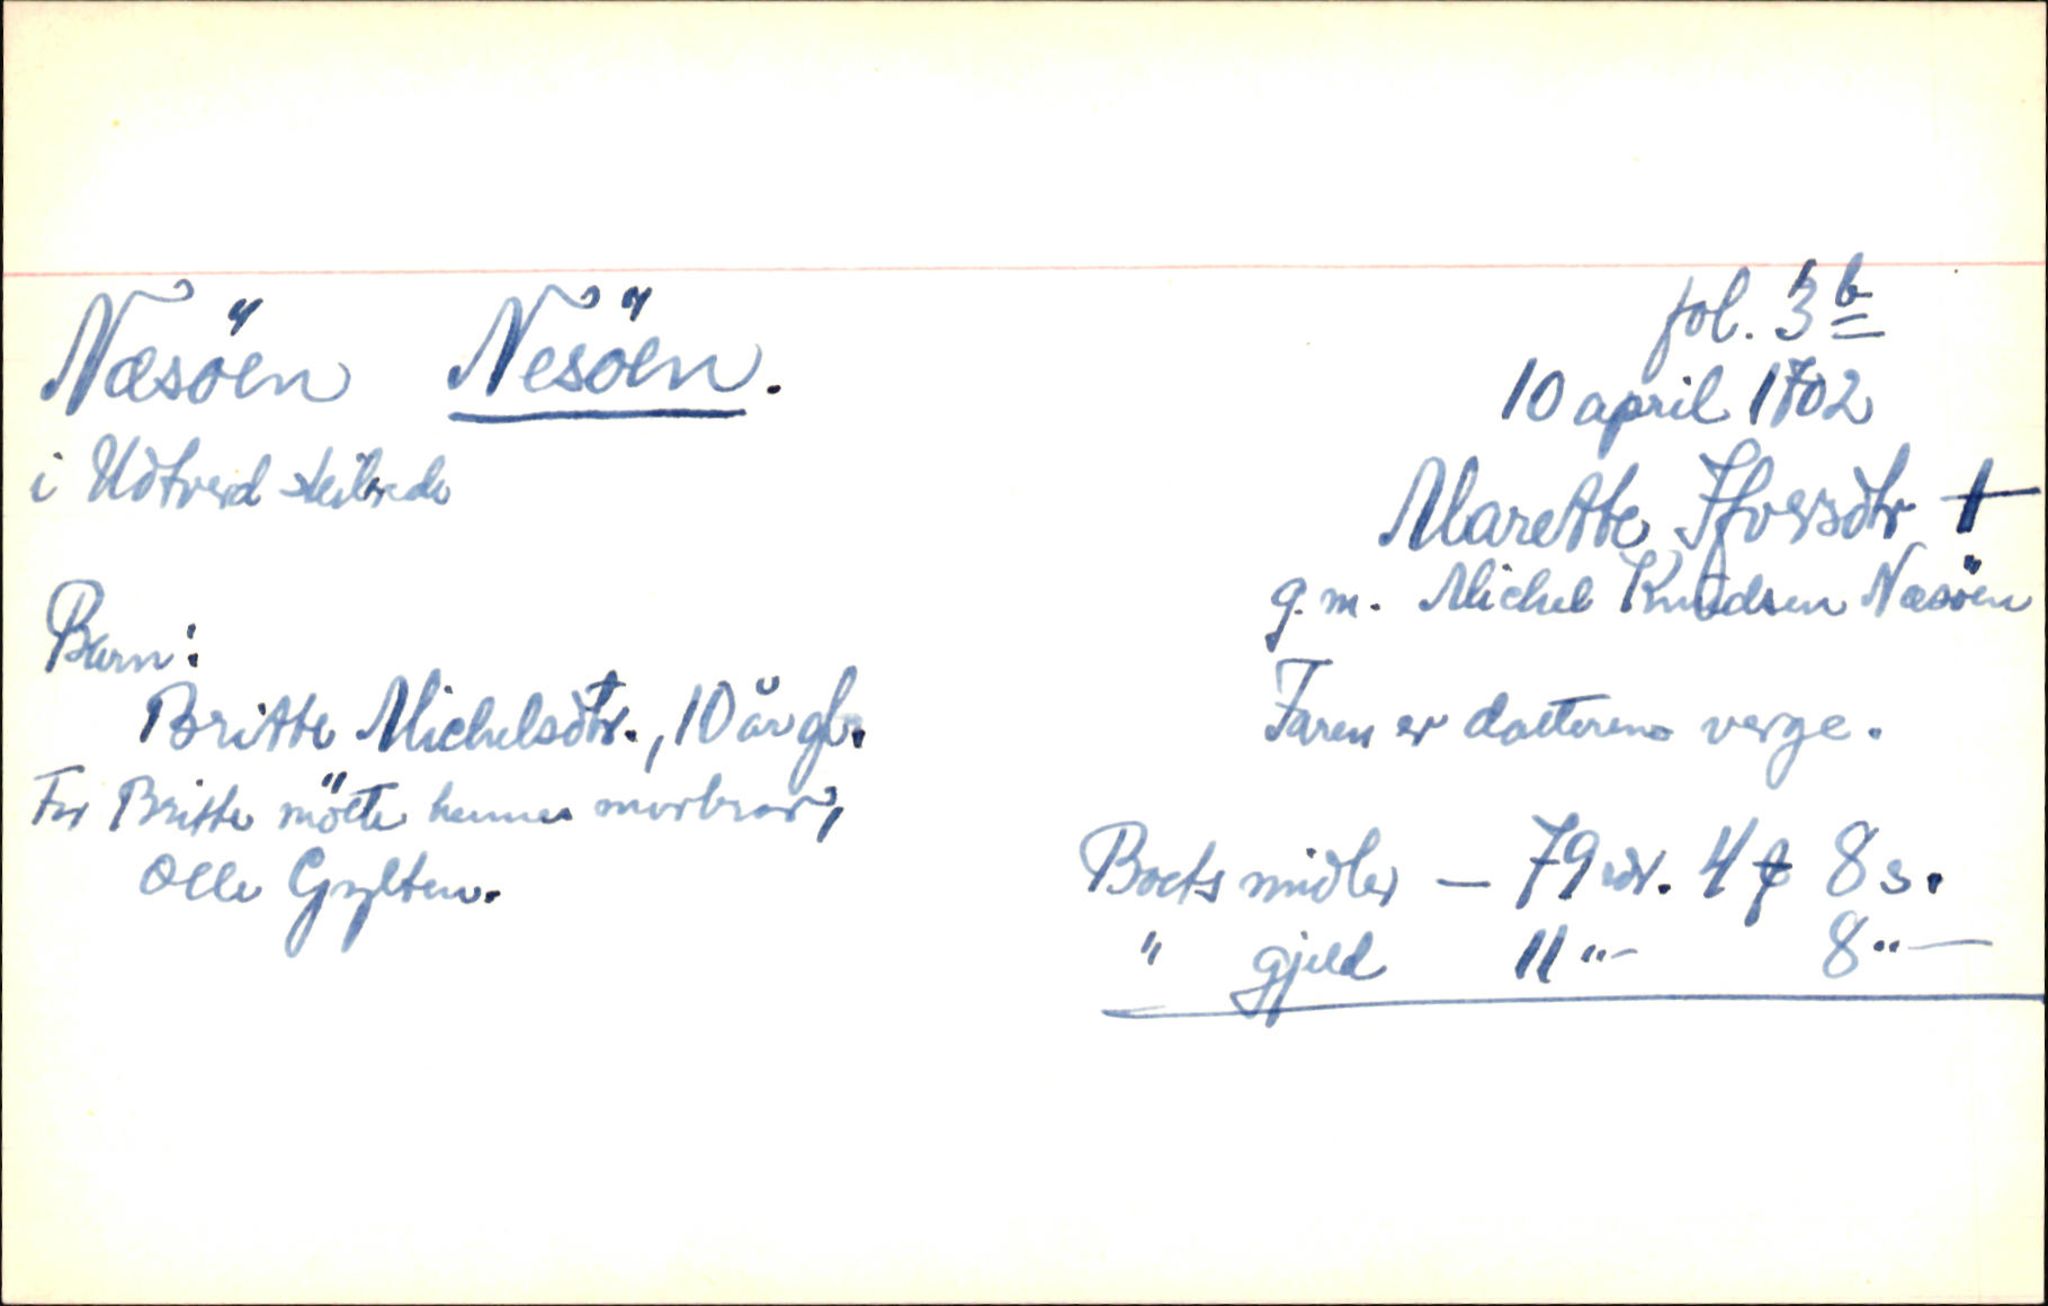 Næsöen Nesöen.
fol. 3 b
10 april 1702
i Udtverd skibrede
Marette Ifversdtr †
g.m. Michel Knudsen Næsöen
Barn:
Britte Michelsdtr., 10 år gl.
Faren er datterens verge.
For Britte mötte hennes morbror,
Olle Gylten.
Boets midler — 79 rdr. 4 ƒ 8 s.
" gjeld 11 "- 8 " —